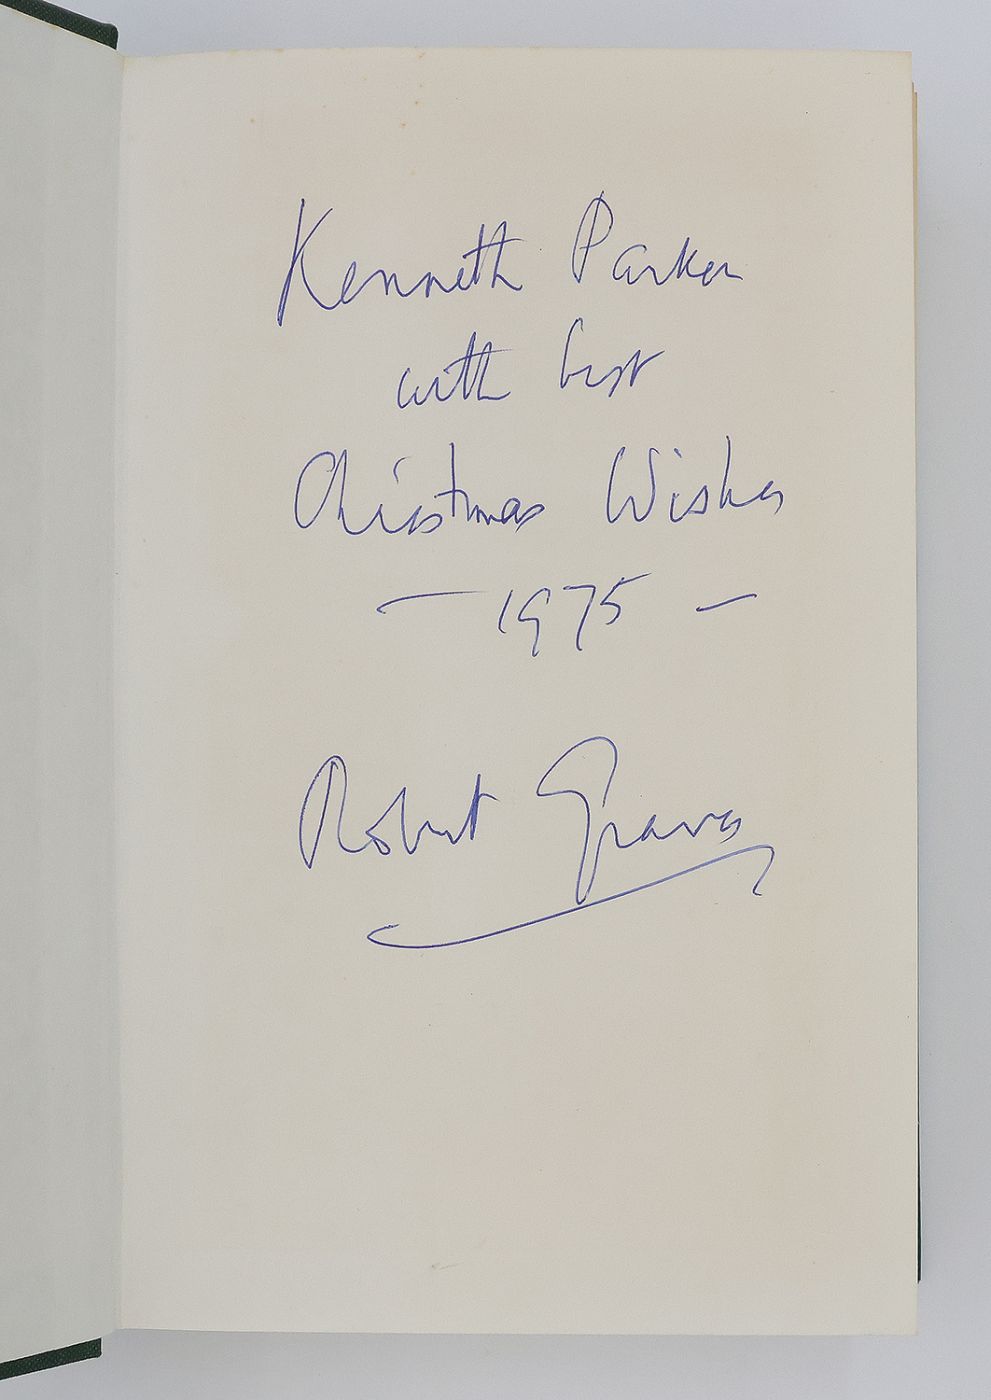 Kenneth Parker
with best
Christmas Wishes
— 1975 —
Robert Graves